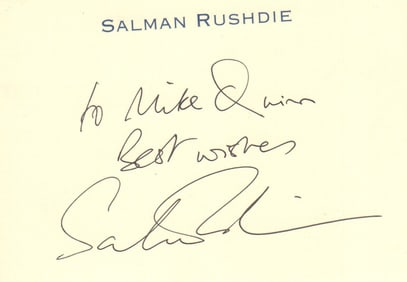 SALMAN RUSHDIE
to Mike Quinn
Best wishes
Salman Rushdie